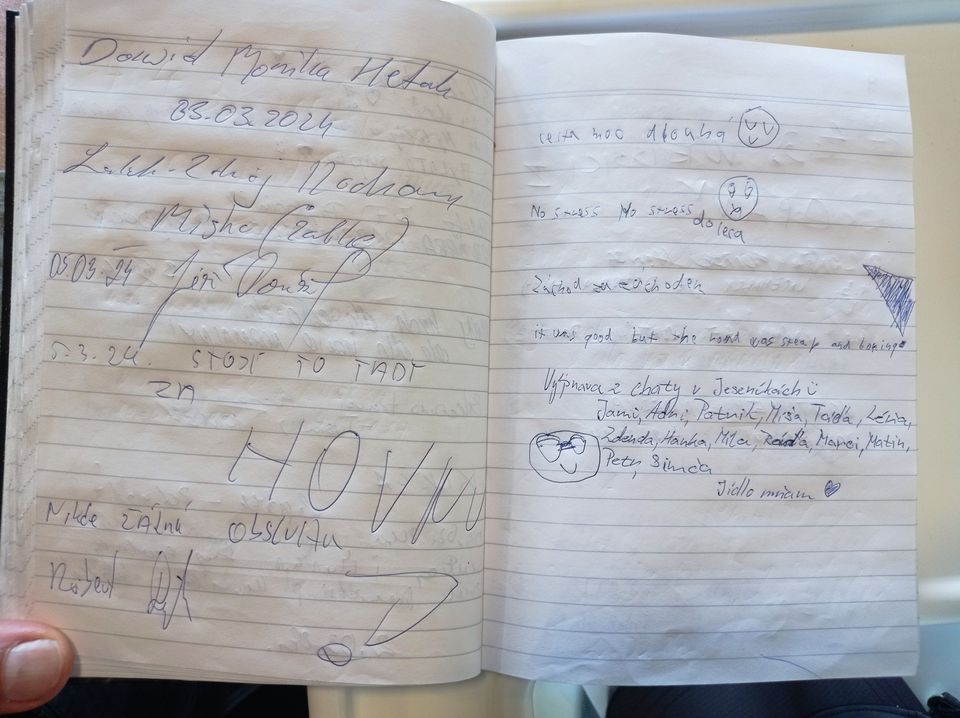 Dawid Monika Hetak
03.03.2024
Misha (Żabka)
03.03.24 Jiří
5.3.24. STOJÍ TO TADY
ZA
HOVNO
Nikde žádná obsluha
Robert
cesta moc dlouhá
No stress No stress
doleva
Záchod za záchodem
it was good but the road was steap and boring
Výprava z chaty v Jeseníkách ü
Jami, Adri, Patrik, Míša, Terda, Lénia,
Zdenda, Hanka, Mila, Marci, Matin,
Petr, Simča
Jídlo mňam ♥